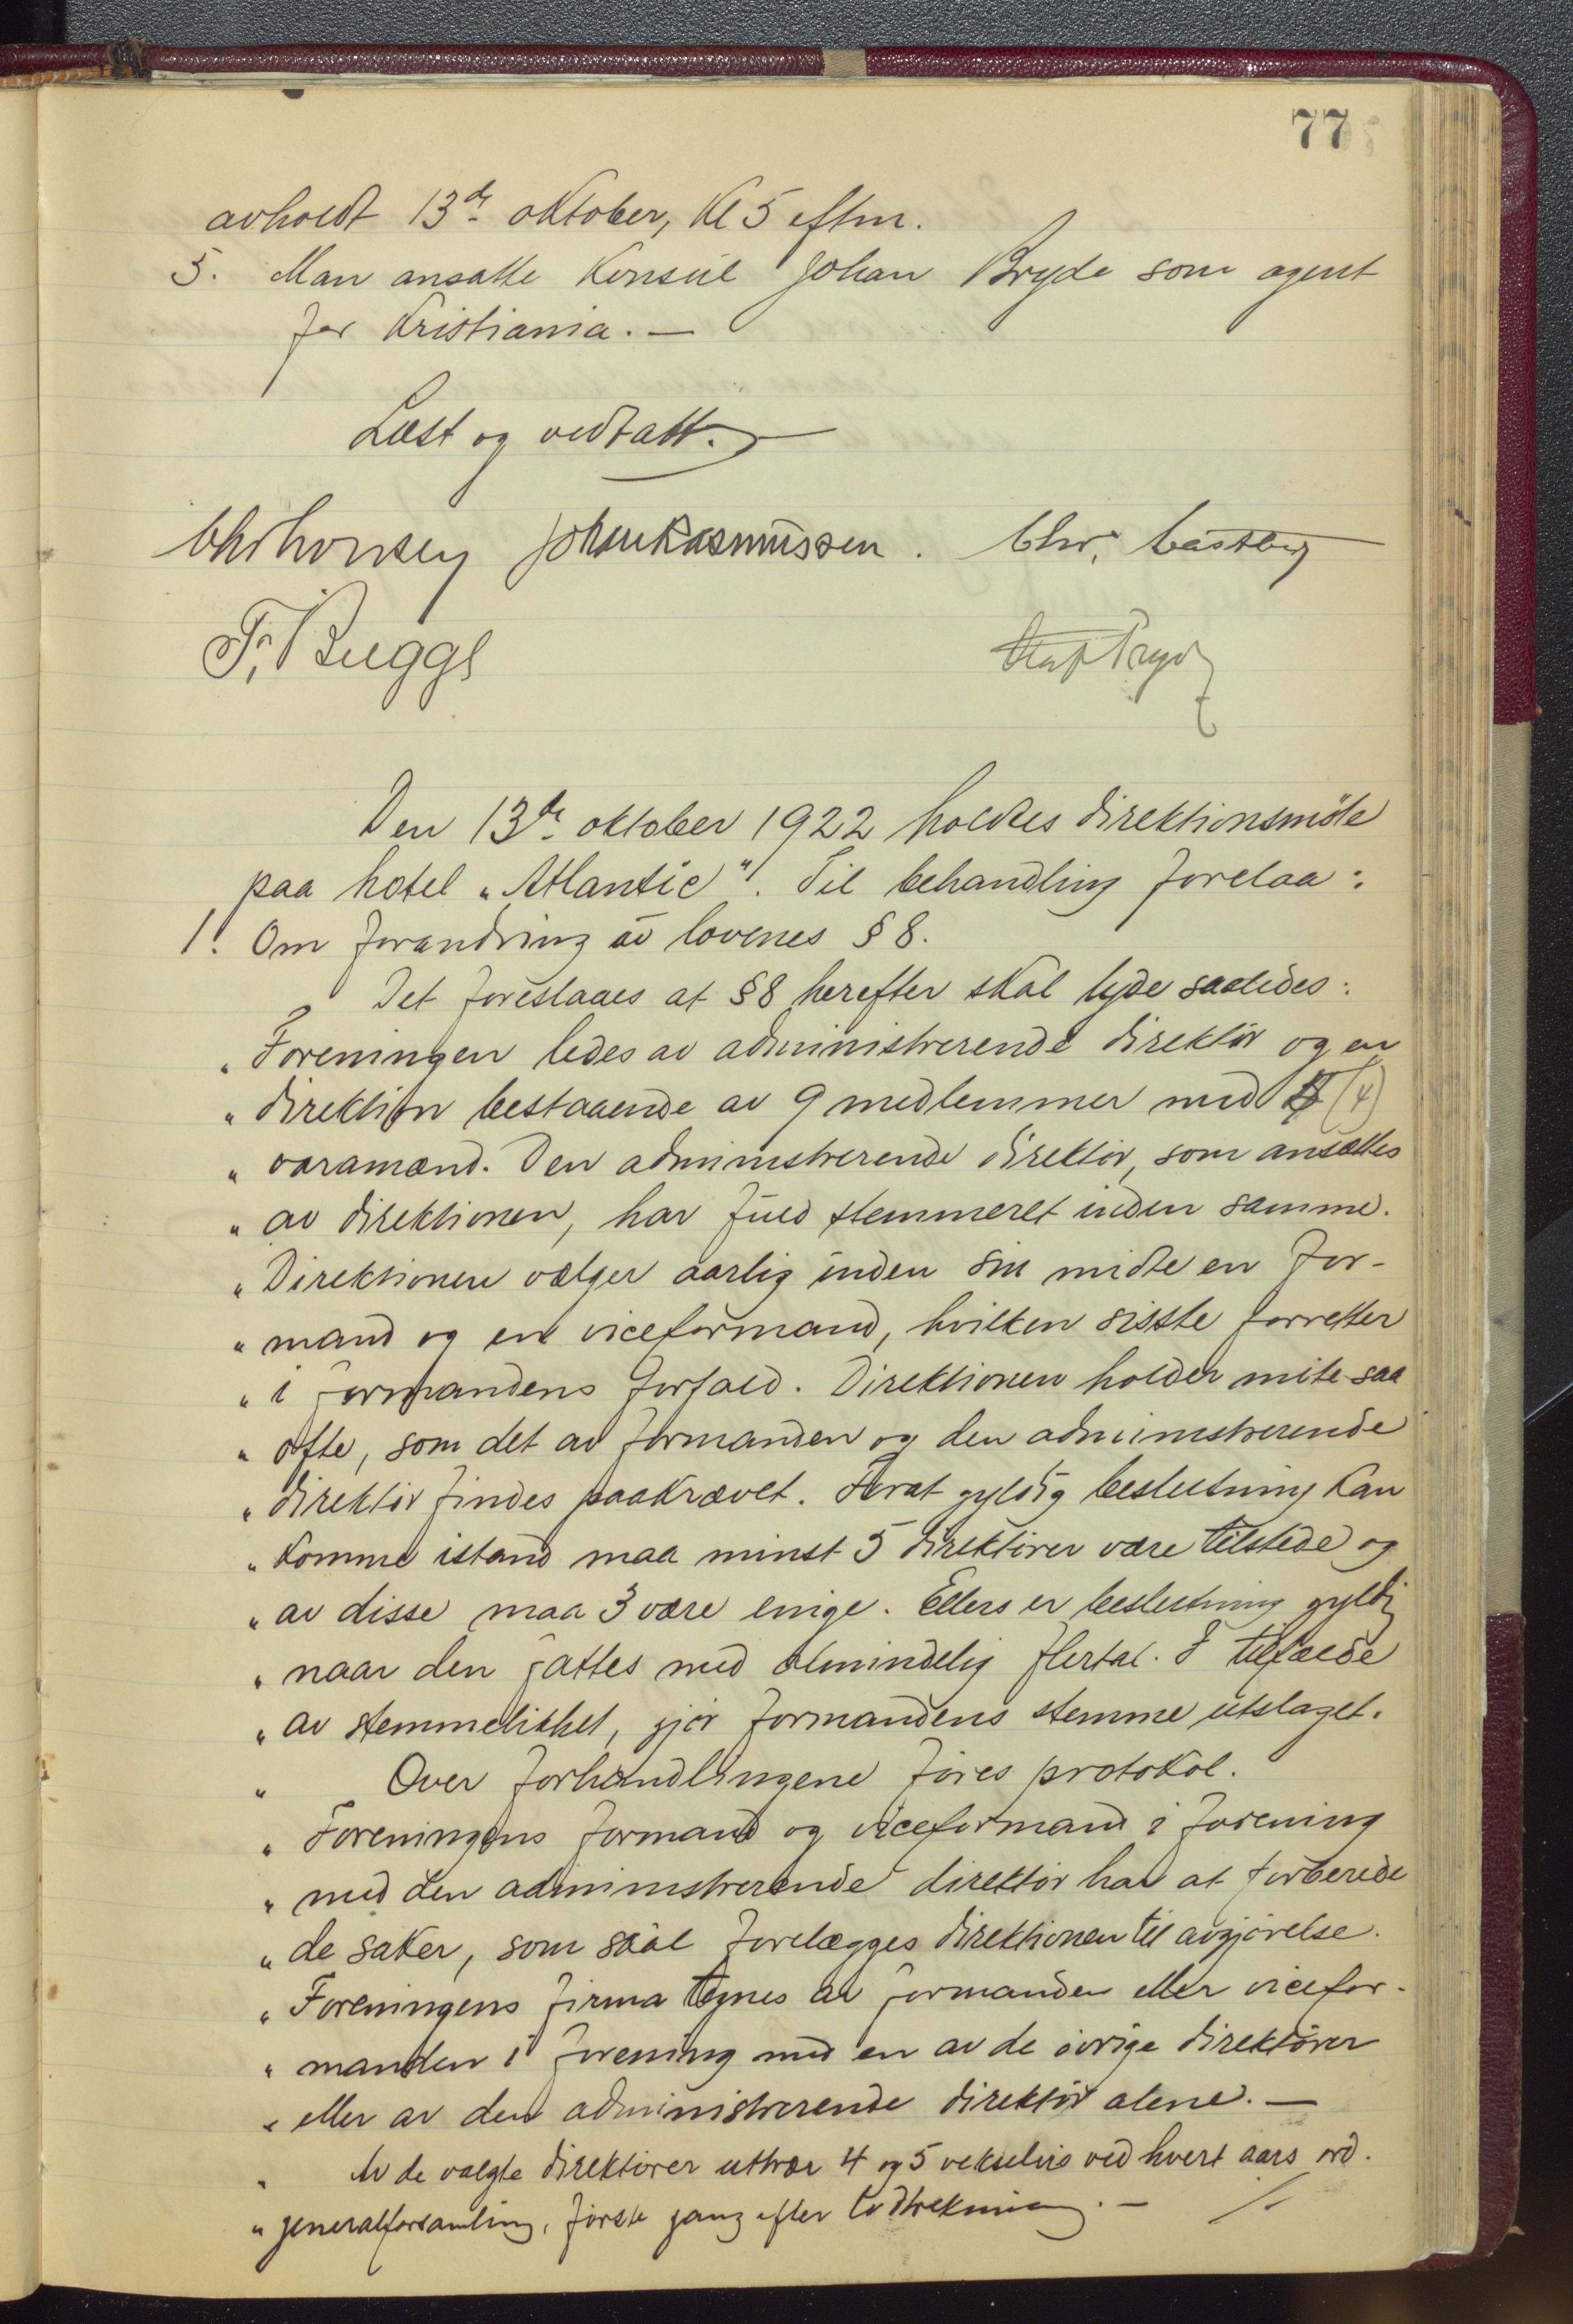 77
avholdt 13de oktober, kl 5 eftm.
5. Man ansatte konsul Johan Bryde som agent
for Kristiania. —
Læst og vedtatt. —
Johan Rasmussen. Chr. Castberg
F. Bugge
Den 13de oktober 1922 holdtes direktionsmöte
paa hotel „Atlantic". Til behandling forelaa:
1. Om forandring av lovenes § 8.
Det foreslaaes at § 8 herefter skal lyde saaledes:
„ Foreningen ledes av administrerende direktör og en
„ direktion bestaaende av 9 medlemmer med (4)
„ varamænd. Den administrerende direktör, som ansættes
„ av direktionen, har fuld stemmeret inden samme.
„ Direktionen vælger aarlig inden sin midte en for-
„ mand og en viceformand, hvilken sisste forretter
„ i formandens forfald. Direktionen holder möte saa
„ ofte, som det av formanden og den administrerende
„ direktör findes paakrævet. Forat gyldig beslutning kan
„ komme istand maa minst 5 direktörer være tilstede og
„ av disse maa 3 være enige. Ellers er beslutning gyldig
„ naar den fattes med almindelig flertal. I tilfælde
„ av stemmelikhet, gjör formandens stemme utslaget.
„ Over forhandlingene föres protokol.
„ Foreningens formand og viceformand i forening
„ med den administrerende direktör har at forberede
„ de saker, som skal forelægges direktionen til avgjörelse.
„ Foreningens firma tegnes av formanden eller vicefor-
„ manden i forening med en av de övrige direktörer
„ eller av den administrerende direktör alene. —
„ Av de valgte direktörer uttrær 4 og 5 vekselvis ved hvert aars ord.
„ generalforsamling, förste gang efter lodtrekning. — ./.